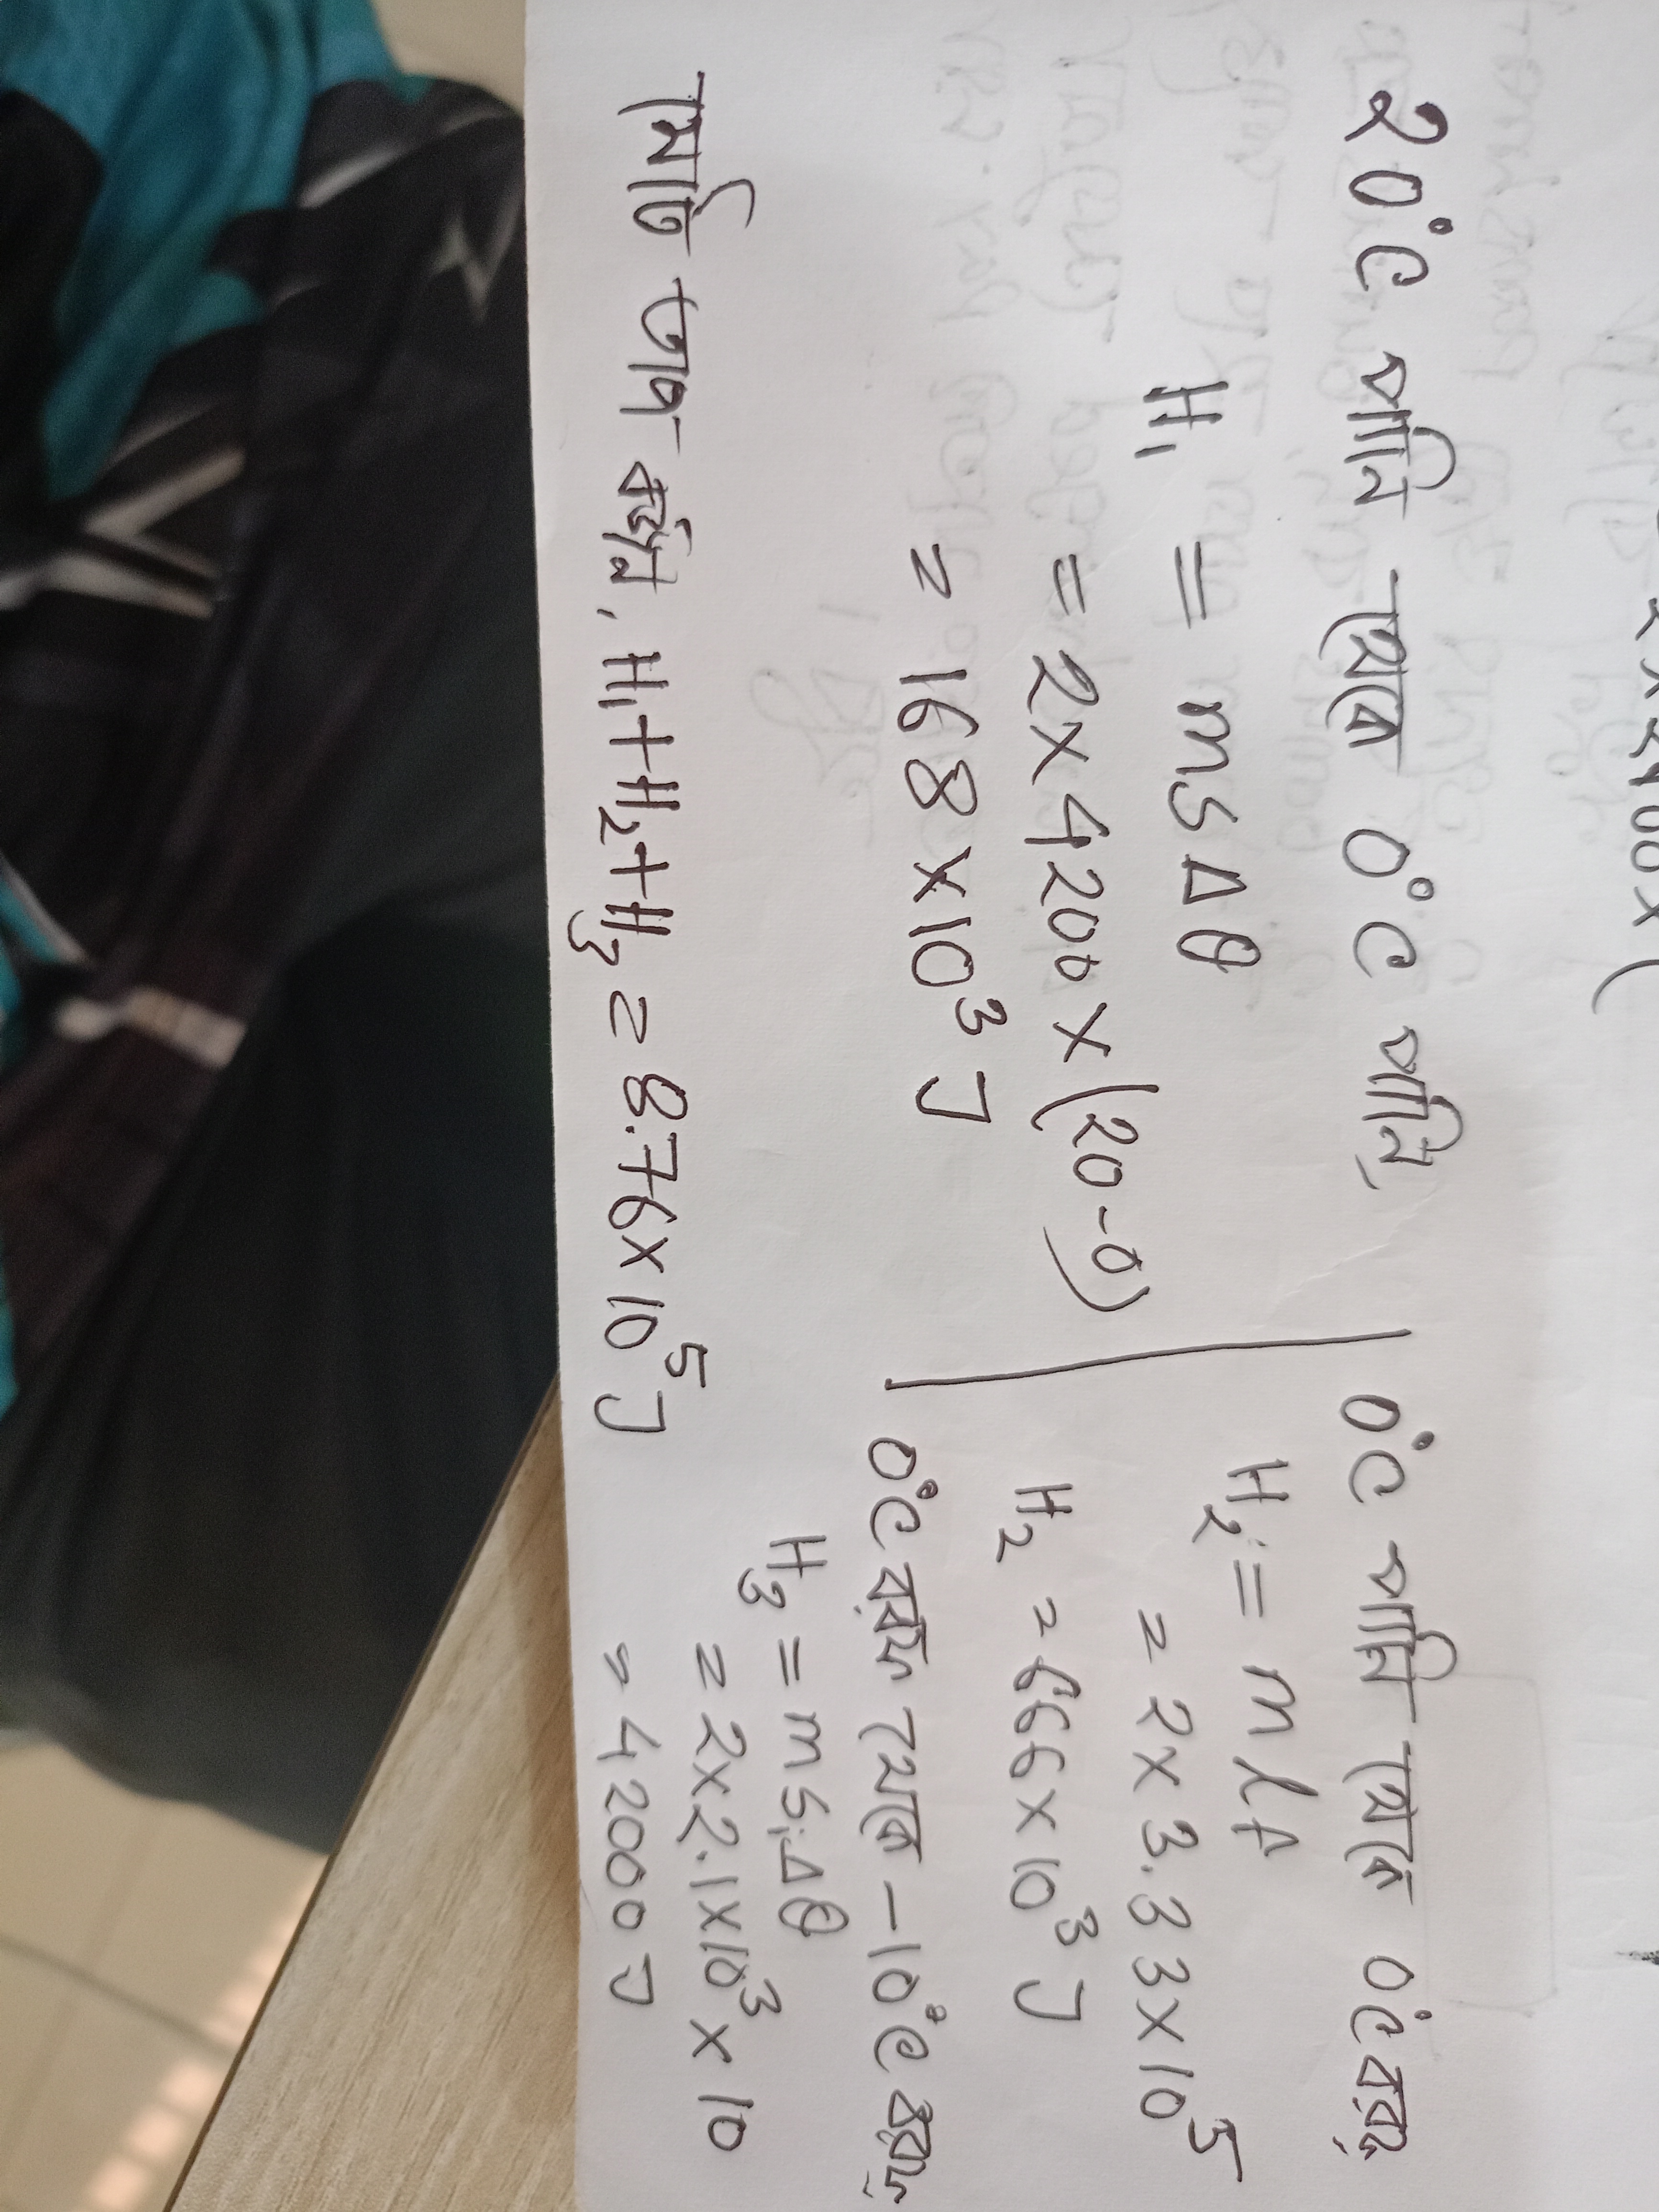 2x2100x(
20°C পানি থেকে 0°C পানি,
H₁ = msΔθ
= 2×4200×(20-0)
= 168×10³ J
0°C পানি থেকে 0°C বরফ
H₂ = mlf
= 2×3.33×10⁵
H₂ = 666×10³ J
0°C বরফ থেকে -10°C বরফ
H₃ = ms₁Δθ
= 2×2.1×10³×10
= 42000 J
মোট তাপ বর্জন, H₁+H₂+H₃ = 8.76×10⁵ J